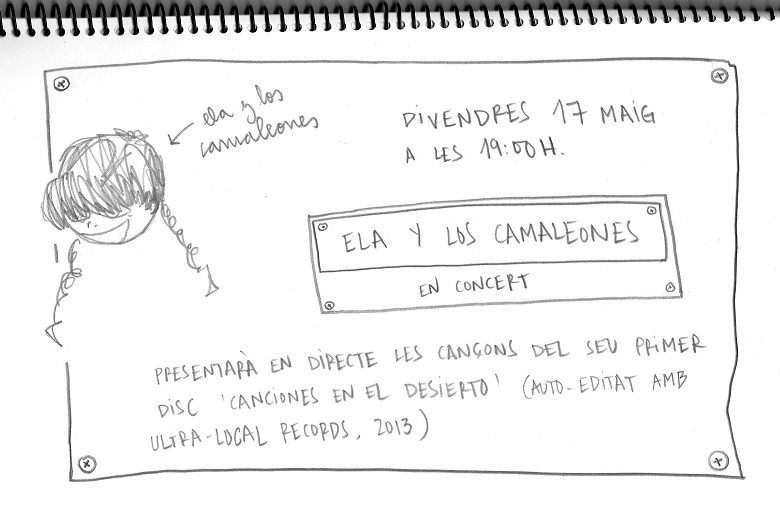 ela y los
camaleones
DIVENDRES 17 MAIG
A LES 19:00H.
ELA Y LOS CAMALEONES
EN CONCERT
PRESENTARÀ EN DIRECTE LES CANÇONS DEL SEU PRIMER
DISC 'CANCIONES EN EL DESIERTO' (AUTO-EDITAT AMB
ULTRA-LOCAL RECORDS, 2013)